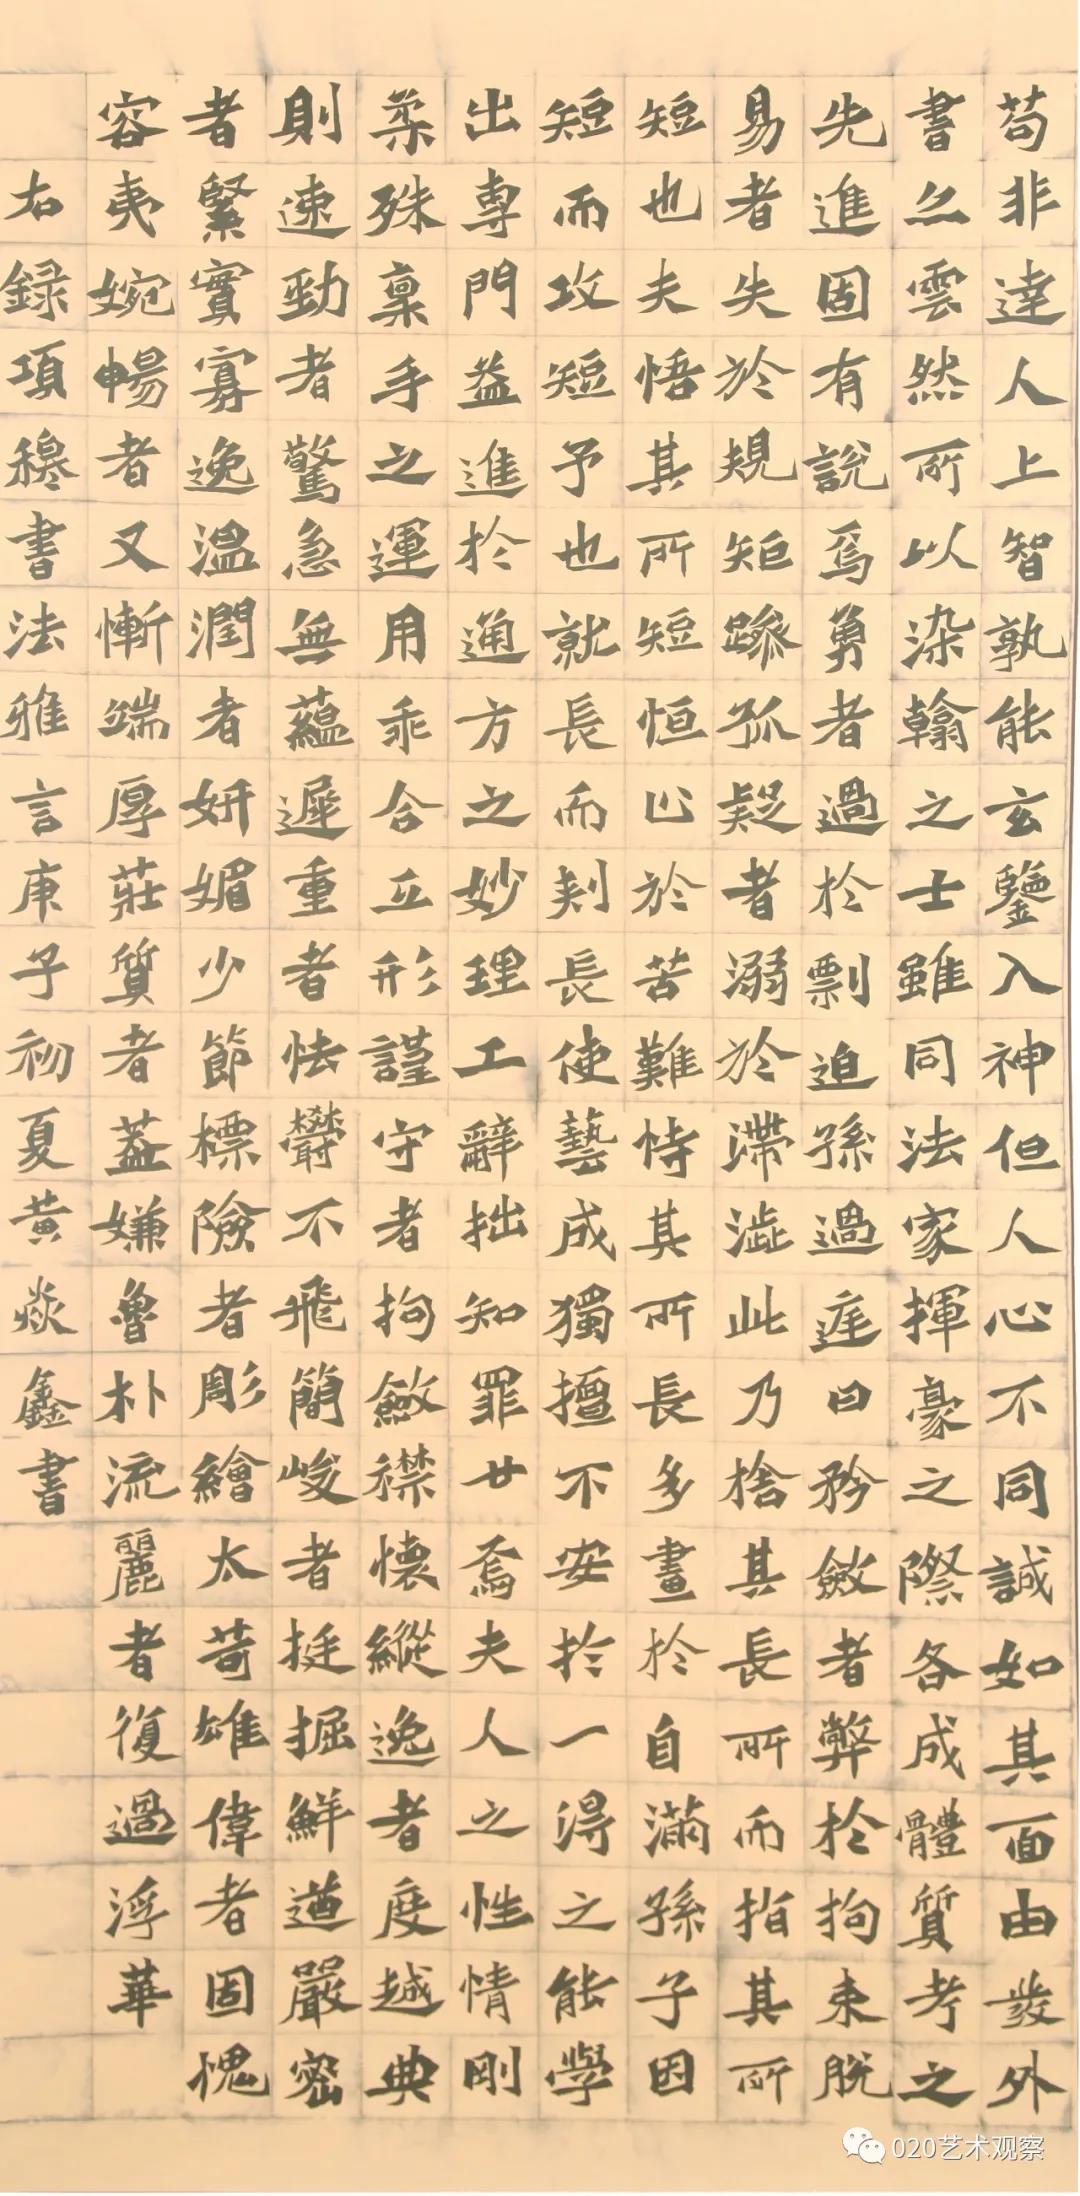 苟非達人上智孰能玄鑒入神但人心不同誠如其面由發外
書亦雲然所以染翰之士雖同法家揮豪之際各成體質考之
先進固有說焉勇者過於剽迫孫過庭曰矜斂者弊於拘束脫
易者失於規矩躁孤疑者溺於滯澁此乃捨其長所而指其所
短也夫悟其所短恒止於苦難恃其所長多畫於自滿孫子因
短而攻短予也就長而刾長使藝成獨擅不安於一得之能學
出専門益進於通方之妙理工辭拙知罪廿焉夫人之性情剛
柔殊稟手之運用乖合互形謹守者拘斂襟懷縱逸者度越典
則速勁者驚急無蘊遲重者怯欝不飛簡峻者挺掘鮮遒嚴密
者緊實寡逸溫潤者妍媚少節標險者彫繪太苛雄偉者固愧
容夷婉暢者又慚端厚莊質者蓋嫌魯朴流麗者復過浮華
右録項穆書法雅言庚子初夏黃焱鑫書
020艺术观察